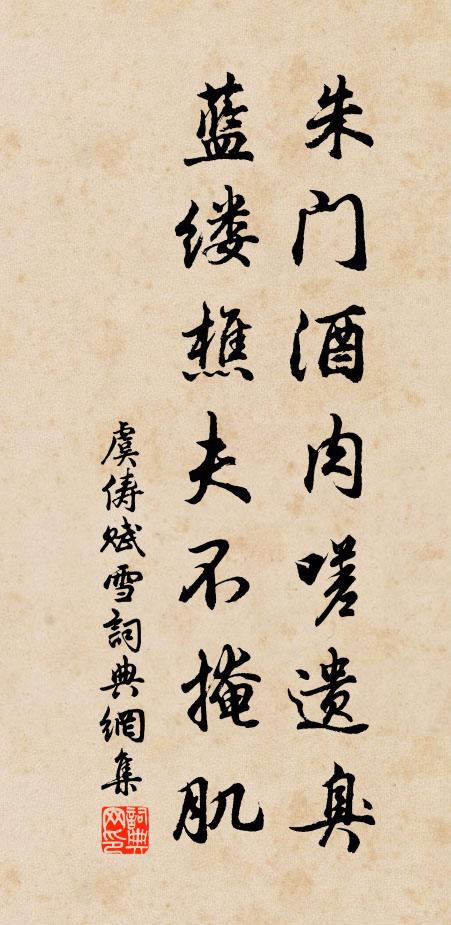 朱门酒肉嗟遗臭
蓝缕樵夫不掩肌
虞俦赋雪詞典網集
詞典网印